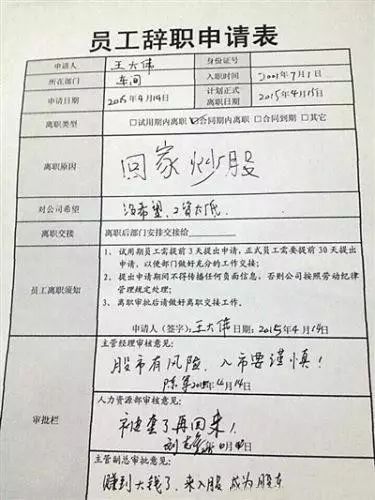 员工辞职申请表
申请人 王大伟 身份证号
所在部门 车间 入职时间 2003年7月1日
申请日期 2015年4月14日 计划正式离职日期 2015年4月15日
离职类型 □试用期内离职 ☑合同期内离职 □合同到期 □其它
离职原因 回家炒股
对公司希望 没希望,工资太低.
离职交接 离职后部门安排交接给
员工离职须知
1、试用期员工需提前3天提出申请,正式员工需要提前30天提出
申请,以便部门做好充分的工作交接;
2、提出申请期间不得传播任何负面信息,否则公司按照劳动纪律
管理规定处理;
3、离职审批后请做好离职交接工作。
申请人(签字):王大伟 日期:2015年4月14日
审批栏
主管经理审核意见:
股市有风险,入市要谨慎!
4月14日
人力资源部审核意见:
被套了再回来!
主管副总审批意见:
赚到大钱了,来入股 成为股东